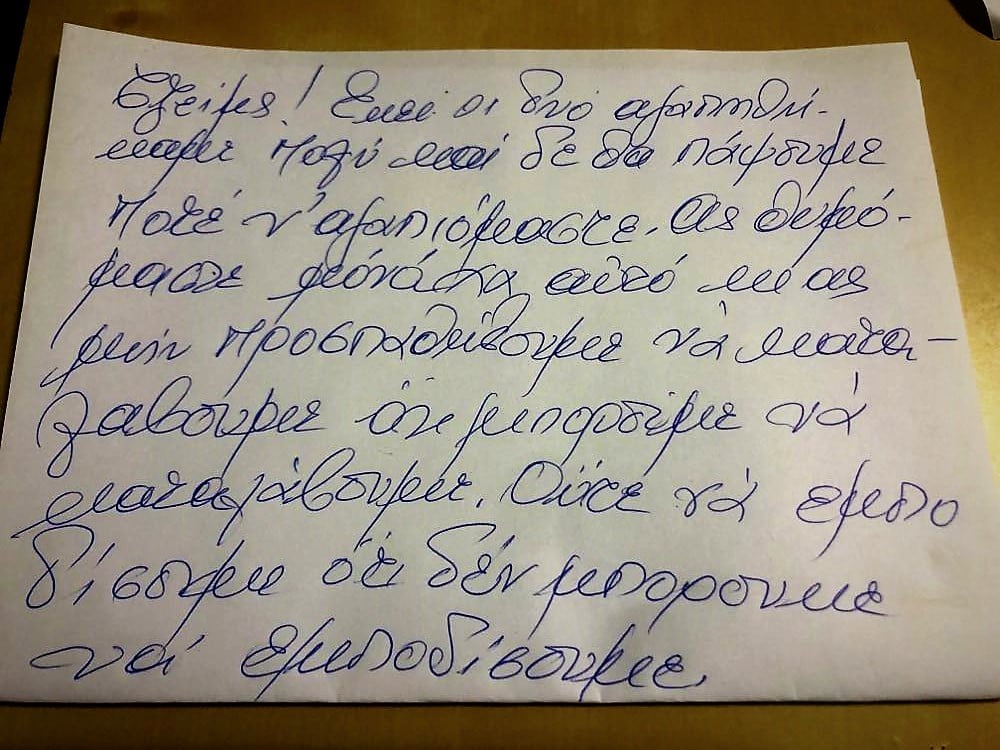 Εμείς οι δυό αγαπηθή-
καμε πολύ και δε θα πάψουμε
ποτέ ν' αγαπιόμαστε. Ας θυμό-
μαστε μονάχα αυτό κι ας
μην προσπαθήσουμε νά κατα-
λάβουμε ό,τι μπορούμε νά
καταλάβουμε. Ούτε νά εμπο
δίσουμε ό,τι δέν μπορούμε
νά εμποδίσουμε.